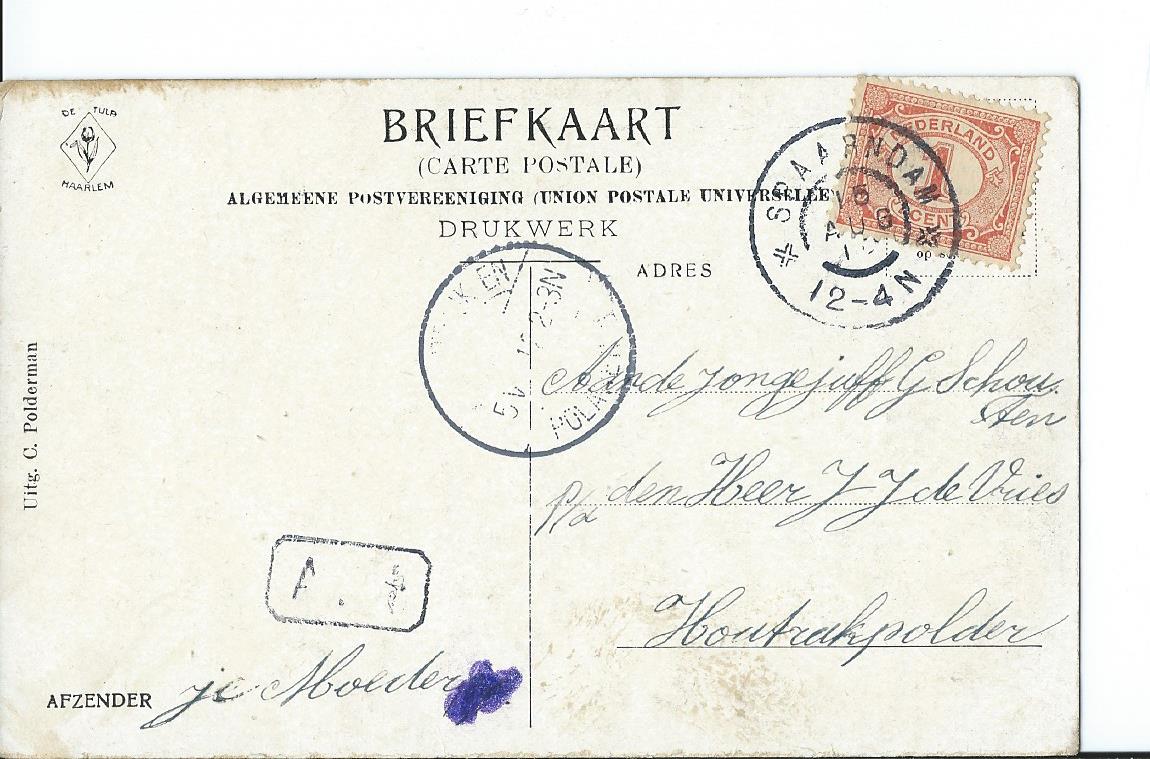 DE TULP
HAARLEM
BRIEFKAART
(CARTE POSTALE)
ALGEMEENE POSTVEREENIGING (UNION POSTALE UNIVERSELLE)
DRUKWERK
ADRES
NEDERLAND
1
CENT
SPAARNDAM
16
AUG
12-4N
2-3N
Uitg. C. Polderman
Aan de jongejuff G Schou
ten
p/a den Heer J J de Vries
Houtrakpolder
A.
AFZENDER
je Moeder